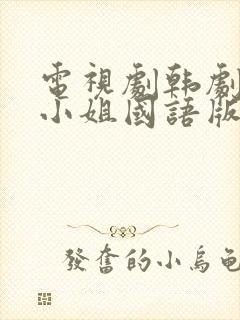 電視劇韩劇
小姐國語版
發奮的小烏龟